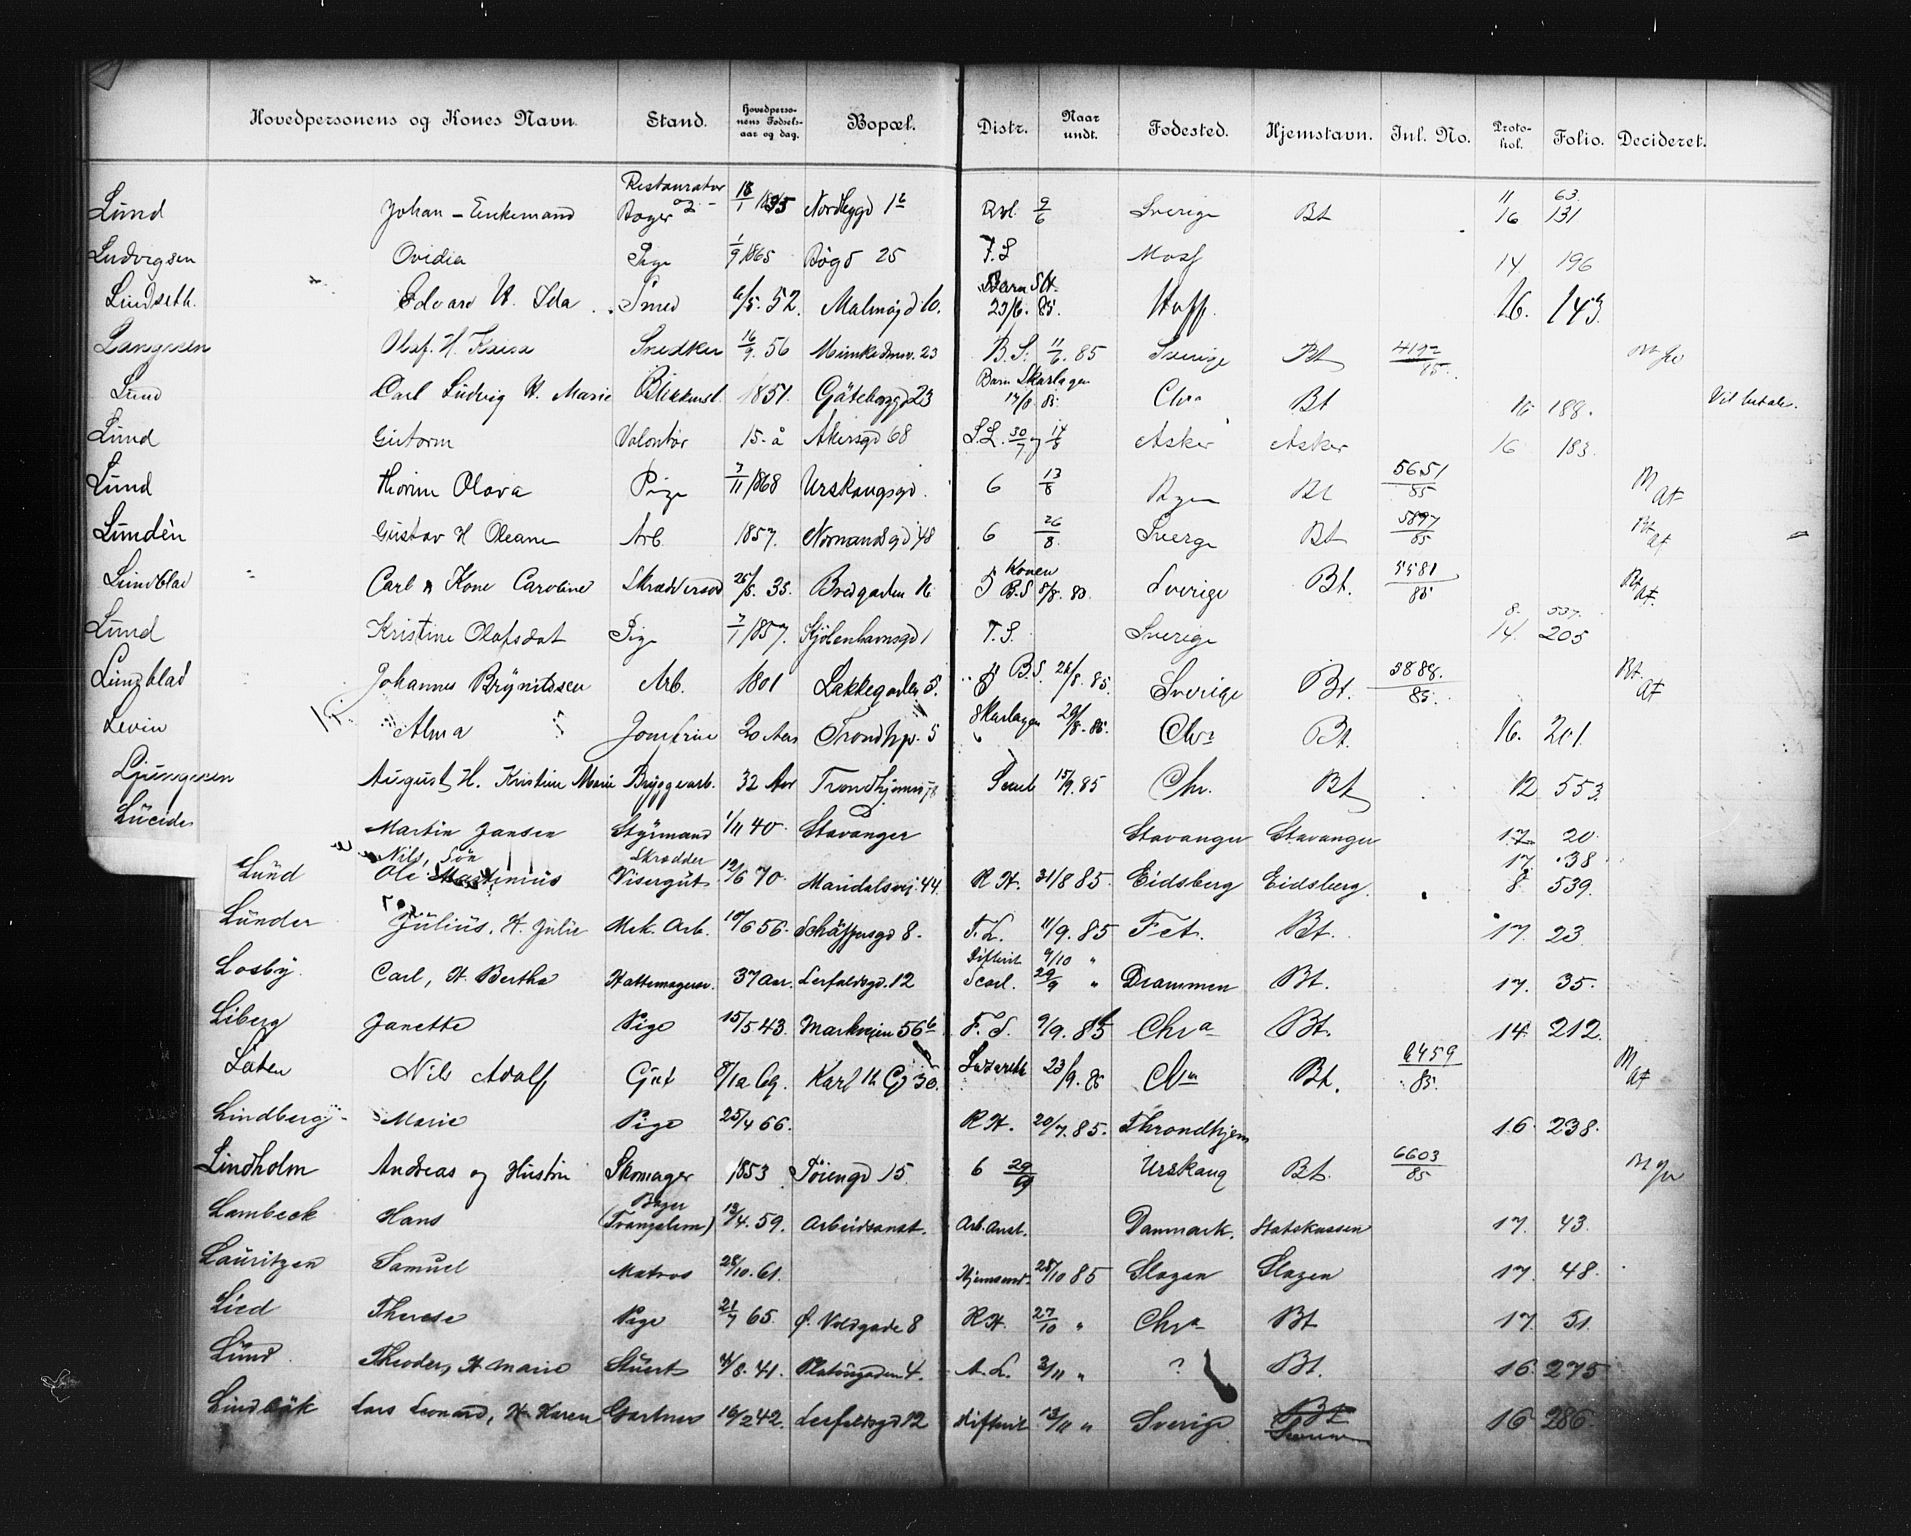 Hovedpersonens og Kones Navn. Stand. Hovedperso-nens Fødsels-aar og dag. Bopæl. Distr. Naar undt. Fødested. Hjemstavn. Inl. No. Proto-kol. Folio. Decideret.
Restauratør 11 63.
Lund Johan - Enkemand Bager 18/1 Nordbygd 1b 9/6 Sverige Bt 16 131
Ludvigsen Ovidia Pige 1/9 1865 Bögd 25 F.S Moss 14 196
Lindseth. Edvard H. Ida Smed 6/5. 52. Malmögd 10. Barn 23/6. 85. Hoff. 16. 143.
Olaf. H. Snedker 16/9. 56 Munkedmv. 23 B.S. 11/6. 85 Sverige Bt
Lund Carl Ludvig H. Marie Blikkensl. 1851. Göteborggd 23 Barn Skarlagen 17/8 85. Chra Bt 16 188. Vil betale.
Lund Gutorm Volontör 15- å Akersgd 68 S.L. 30/7 og 14/8 Asker Asker 16 183.
Lund Thorine Olava Pige 7/11 1868 Urskougsgd. 6 13/8 Byen Bt 5651/85 M At
Lundèn Gustav H Oleane Arb. 1857. Normandsgd 48 6 26/8. Sverge Bt 5897/85 Bt At
Lundblad Carl & Kone Caroline Skræddersvd 25/5. 35. Bredgaden 16 Konen B.S 5/8. 83. Sverige Bt. 5581/85 Bt At.
8. 537.
Lund Kristine Olafsdat Pige 7/1 1857. Kjöbenhavnsgd 1 T.S. Sverige 14. 205
Johannes Brynitssen Arb. 1801 Lakkegaden 5. B.S. 26/8. 85. Sverige Bt. 5888./85. Bt. At
Levin Alma Jomfrue 20 Aar Trondhjv. 5 Skarlagen 29/8. 85. Chra Bt. 16. 201.
Ljungmen August, H. Kristine Marie Bryggearb. 32 Aar Scarl 15/9. 85 Chr. Bt 12 553.
Martin Jansen Styrmand 1/11 40. Stavanger Stavanger Stavanger 17 20.
Nils, Sön Skrædder 17. 38
Lund Ole Martinius Visergut 12/6 70. Mandalsvej 44. R H. 31/8 85. Eidsberg Eidsberg. 8. 539.
Lunder Julius, H. Julie Mek. Arb. 10/6 56. Schäffersgd 8. F. L. 11/9. 85 Fet. Bt. 17. 23
Difterit 9/10 "
Losby. Carl, H. Bertha Hattemagersv. 37 Aar. Lerfaldsgd. 12 Scarl. 29/9 " Drammen Bt. 17. 35.
Liberg Janette Pige 15/5 43. Markveien 56b F. S. 9/9. 85 Chra Bt. 14. 212.
Laten Nils Adolf Gut 8/12 69. Karl 12 Gd 30. Lazareth 23/9. 85 Chra Bt. 6459/85. M At
Lindberg Marie Pige 25/4 66. R H. 20/7. 85. Throndhjem 16. 238.
Lindholm Andreas og Hustru Skomager 1853 Töiengd 15 6 29/9 Urskaug Bt. 6603/85
Lambeck Hans Bager (Tvangslem) 13/4. 59. Arbeidsanst. Arb. Anst. Danmark. Statskassen 17. 43.
Lauritzen Samuel Matros 28/10. 61. Hjemsendt. 28/10 85 Slagen Slagen 17. 48.
Lied Therese Pige 21/7 65. Ø. Voldgade 8 R H. 27/10 " Chra Bt 17. 51.
Lund Theodor, H Marie Stuert 4/8. 41. Platousgaden 4. A. L. 3/11 " ? Bt. 16. 275
Lindbäk Lars Leonard, H. Karen Gartner 16/2 42. Lerfaldsgd 12 Difterit 13/11 " Sverige Bt 16. 286.